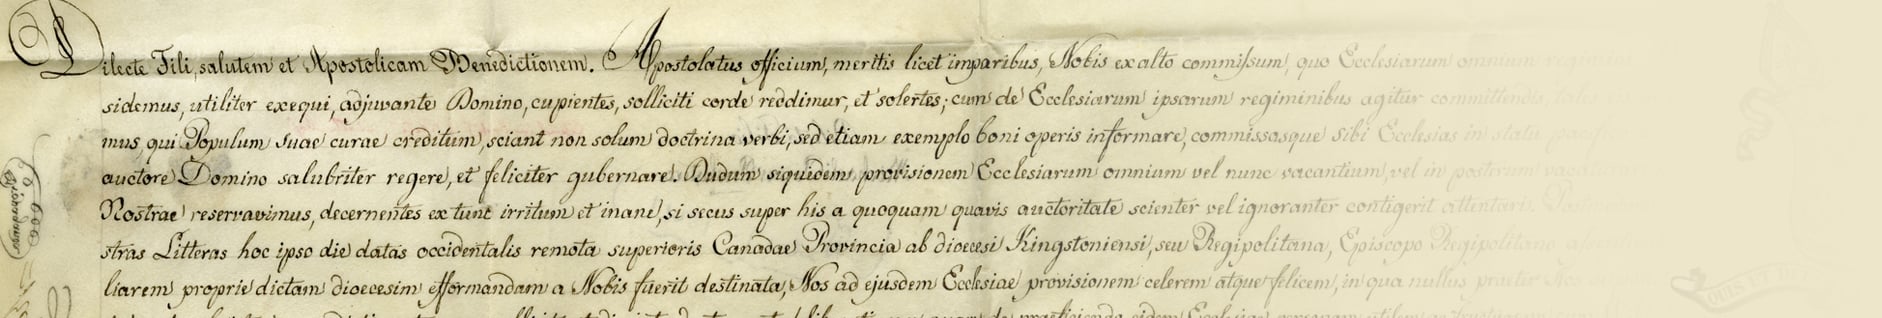 Dilecte Fili, salutem et Apostolicam Benedictionem. Apostolatus officium, meritis licet imparibus, Nobis ex alto commissum, quo Ecclesiarum omnium regimini
sidemus, utiliter exequi, adjuvante Domino, cupientes, solliciti corde reddimur, et solertes; cum de Ecclesiarum ipsarum regiminibus agitur committendis, tales
mus, qui Populum suae curae creditum, sciant non solum doctrina verbi, sed etiam exemplo boni operis informare, commissasque sibi Ecclesias in statu
auctore Domino salubriter regere, et feliciter gubernare. Dudum siquidem provisionem Ecclesiarum omnium vel nunc vacantium, vel in posterum
Nostrae reservavimus, decernentes ex tunc irritum et inane, si secus super his a quoquam quavis auctoritate scienter vel ignoranter contigerit attentari.
stras Litteras hoc ipso die datas occidentalis remota superioris Canadae Provincia ab dioecesi Kingstoniensi, seu Regipolitana, Episcopo Regipolitano
liarem proprie dictam dioecesim efformandam a Nobis fuerit destinata, Nos ad ejusdem Ecclesiae provisionem celerem atque felicem, in qua nullus praeter Nos